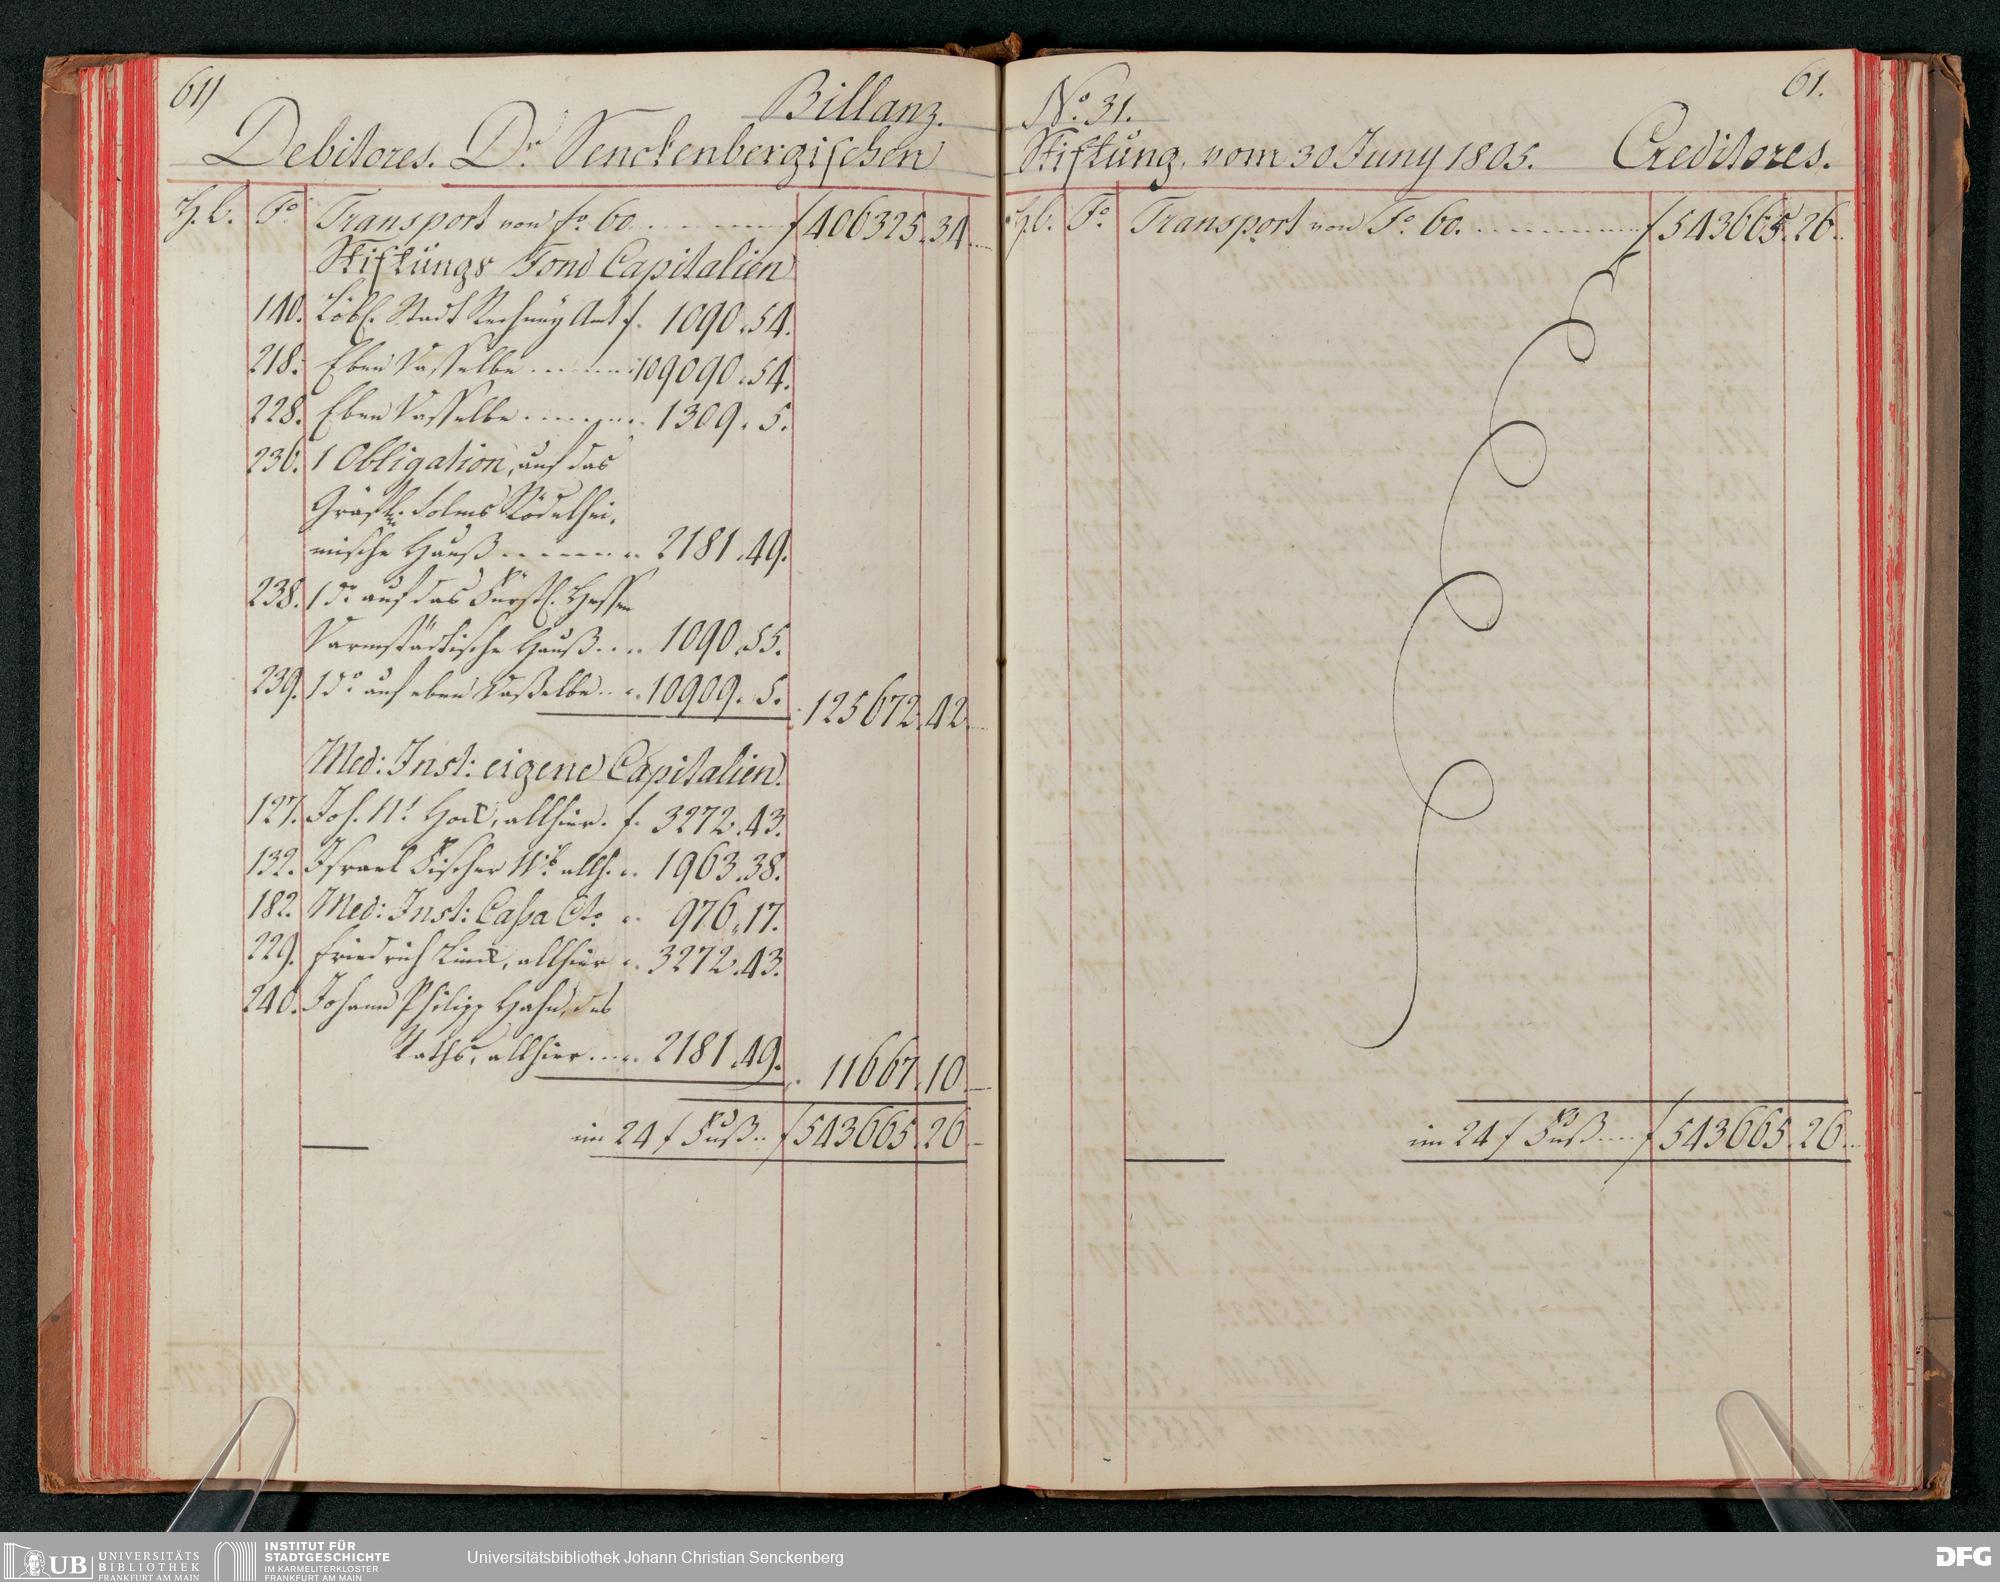 61)
Billanz.
Debitores. Dr. Senckenbergischen
H.b. Fo Transport von fo. 60. f 406325.34.
Stiftungs Fond Capitalien
140. Löbl. Stadt Rechnung Amt f. 1090.54.
218. Eben dasselbe 109090.54.
228. Eben dasselbe 1309.5.
236. 1 Obligation, auf das
Gräfl. Solms Rödelhei-
mische Hauß 2181.49.
238. 1 do. auf das Fürstl. Hessen
Darmstädtische Hauß 1090.55.
239. 1 do. auf eben daßelbe 10909.5. 125672.42.
Med: Inst: eigene Capitalien.
127. Joh. allhier. f. 3272.43.
132. Israel Fischer allh. 1963.38.
182. Med: Inst: Cassa Cto 976.17.
229. Friedrich allhier 3272.43.
240. Johann Philipp Hahn, des
Raths, allhier 2181.49. 11667.10.
im 24 f Fuß f 543665.26.
No. 31.
61.
Stiftung, vom 30 Juny 1805. Creditores.
H.b. Fo. Transport von Fo. 60. f 543665.26.
im 24 f Fuß f 543665.26.
UB UNIVERSITÄTS
BIBLIOTHEK
FRANKFURT AM MAIN
INSTITUT FÜR
STADTGESCHICHTE
IM KARMELITERKLOSTER
FRANKFURT AM MAIN
Universitätsbibliothek Johann Christian Senckenberg
DFG